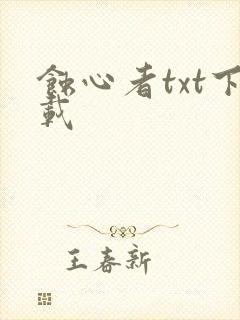 蝕心者txt下
載
王春新